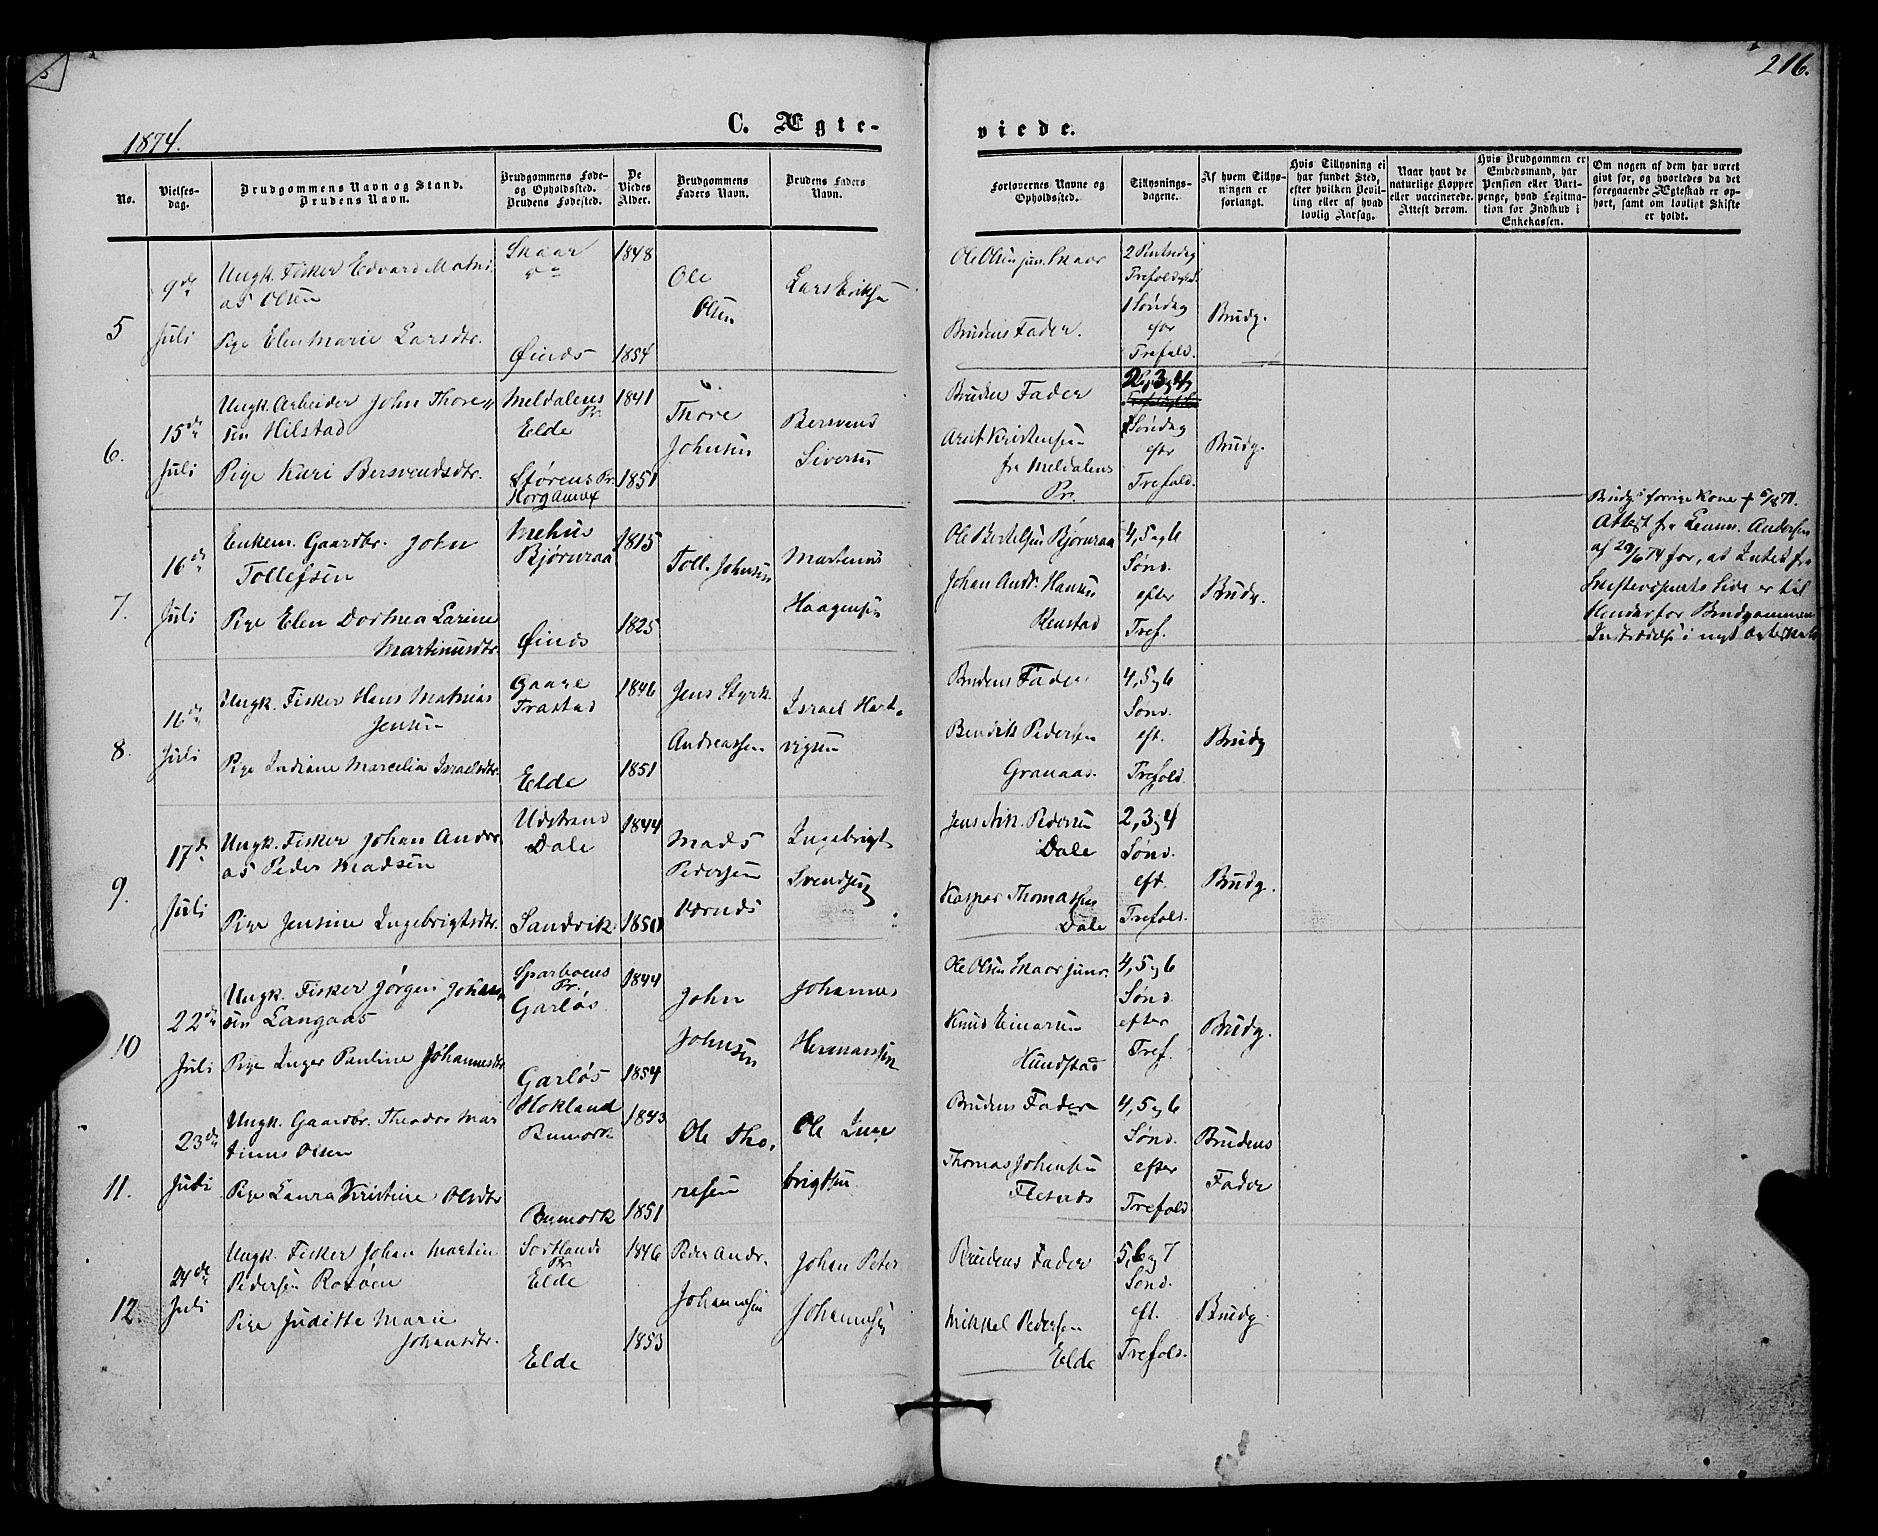 216.
1874.
C. Ægte-
viede.
No.
Vielses-
dag.
Brudgommens Navn og Stand.
Brudens Navn.
Brudgommens Føde-
og Opholdssted.
Brudens Fødested.
De
Viedes
Alder.
Brudgommens
Faders Navn.
Brudens Faders
Navn.
Forlovernes Navne og
Opholdssted.
Tillysnings-
dagene.
Af hvem Tillys-
ningen er
forlangt.
Hvis Tillysning ei
har fundet Sted,
efter hvilken Bevil-
ling eller af hvad
lovlig Aarsag.
Naar havt de
naturlige Kopper
eller vaccinerede.
Attest derom.
Hvis Brudgommen er
Embedsmand, har
Pension eller Vart-
penge, hvad Legitima-
tion for Indskud i
Enkekassen.
Om nogen af dem har været
givt før, og hvorledes da det
foregaaende Ægteskab er op-
hørt, samt om lovligt Skifte
er holdt.
5
9de
Juli
Ungk. Fisker Edvard Mathi
as Olsen
Pige Elen Marie Larsdtr.
Skaar
Øinæs
1848
1854
Ole
Olsen
Lars Eriksen
Ole Olsen jun. Skaar
Brudens Fader.
2 Pintsedag
1 Søndag
efter
Trefold.
Brudg.
6.
15de
Juli
Ungk. Arbeider John Thore-
sen Hilstad
Pige Kari Bersvendsdtr.
Meldalens
Pr.
Elde
Størens Pr.
Horg Annex
1841
1851
Thore
Johnsen
Bersvend
Siversen
Brudens Fader
Arnt Kristensen
fra Meldalens
Pr.
2, 3 og 4
Søndag
efter
Trefold.
Brudg.
7.
16de
Juli
Enkem. Gaardbr. John
Tollefsen
Pige Elen Dorthea Larine
Martinusdtr.
Mehus
Bjørnraa
Øinæs
1815
1825
Toll. Johnsen
Martenus
Haagensen
Ole Bertelsen Bjørnraa
Johan Andr. Hansen
Renstad
4, 5 og 6
Sønd.
efter
Tref.
Brudg.
Brudg. forrige Kone
Attest fra Lensm. Andersen
af 29/6 74 for, at Intet fra
Skifterettens Side er til
Hinder for Brudgommens
Indtrædelse i nyt Ægteskab
8.
16de
Juli
Ungk. Fisker Hans Mathias
Jensen
Pige Indiane Marcelia Israelsdtr.
Gaare
Trastad
Elde
1846
1851
Jens Styrk.
Andreassen
Israel Hart-
vigsen
Brudens Fader
Bendik Pedersen
Granaas.
4, 5 og 6
Sønd.
eft.
Trefold.
Brudg
9.
17de
Juli
Ungk. Fisker Johan Andre
as Peder Madsen
Pige Jensine Ingebrigtsdtr.
Udstrand
Dale
Sandvik
1844
1850
Mads
Pedersen
Ingebrigt
Svendsen
Jens Nik. Pedersen
Dale
Kaspar Thomassen
Dale
2, 3 og 4
Sønd.
eft.
Trefold.
Brudg.
10
22de
Juli
Ungk. Fisker Jørgen Johan-
sen Langaas
Pige Inger Pauline Johannesdtr
Sparboens
Pr.
Garløs
Garløs
1844
1854
John
Johnsen
Johannes
Hermansen
Ole Olsen Skaar junr.
Knud Einarsen
Hundstad
4, 5 og 6
Sønd.
efter
Tref.
Brudg.
11.
23de
Juli
Ungk. Gaardbr. Theodor Mar
tinus Olsen
Pige Laura Kristine Olsdtr
Hokland
Bumork
Bumork
1843
1851
Ole Tho-
resen
Ole Inge
brigtsen
Brudens Fader
Thomas Johnsen
Flesnæs
4, 5 og 6
Sønd.
efter
Trefold
Brudens
Fader
12.
24de
Juli
Ungk. Fisker Johan Martin
Pedersen Rosøen
Pige Juditte Marie
Johansdtr.
Sortlands
Pr.
Elde
Elde
1846
1853
Peder Andr.
Johannesen
Johan Peter
Johannesen
Brudens Fader
Mikkel Pedersen
Elde
5, 6 og 7
Sønd.
eft.
Trefold.
Brudg.